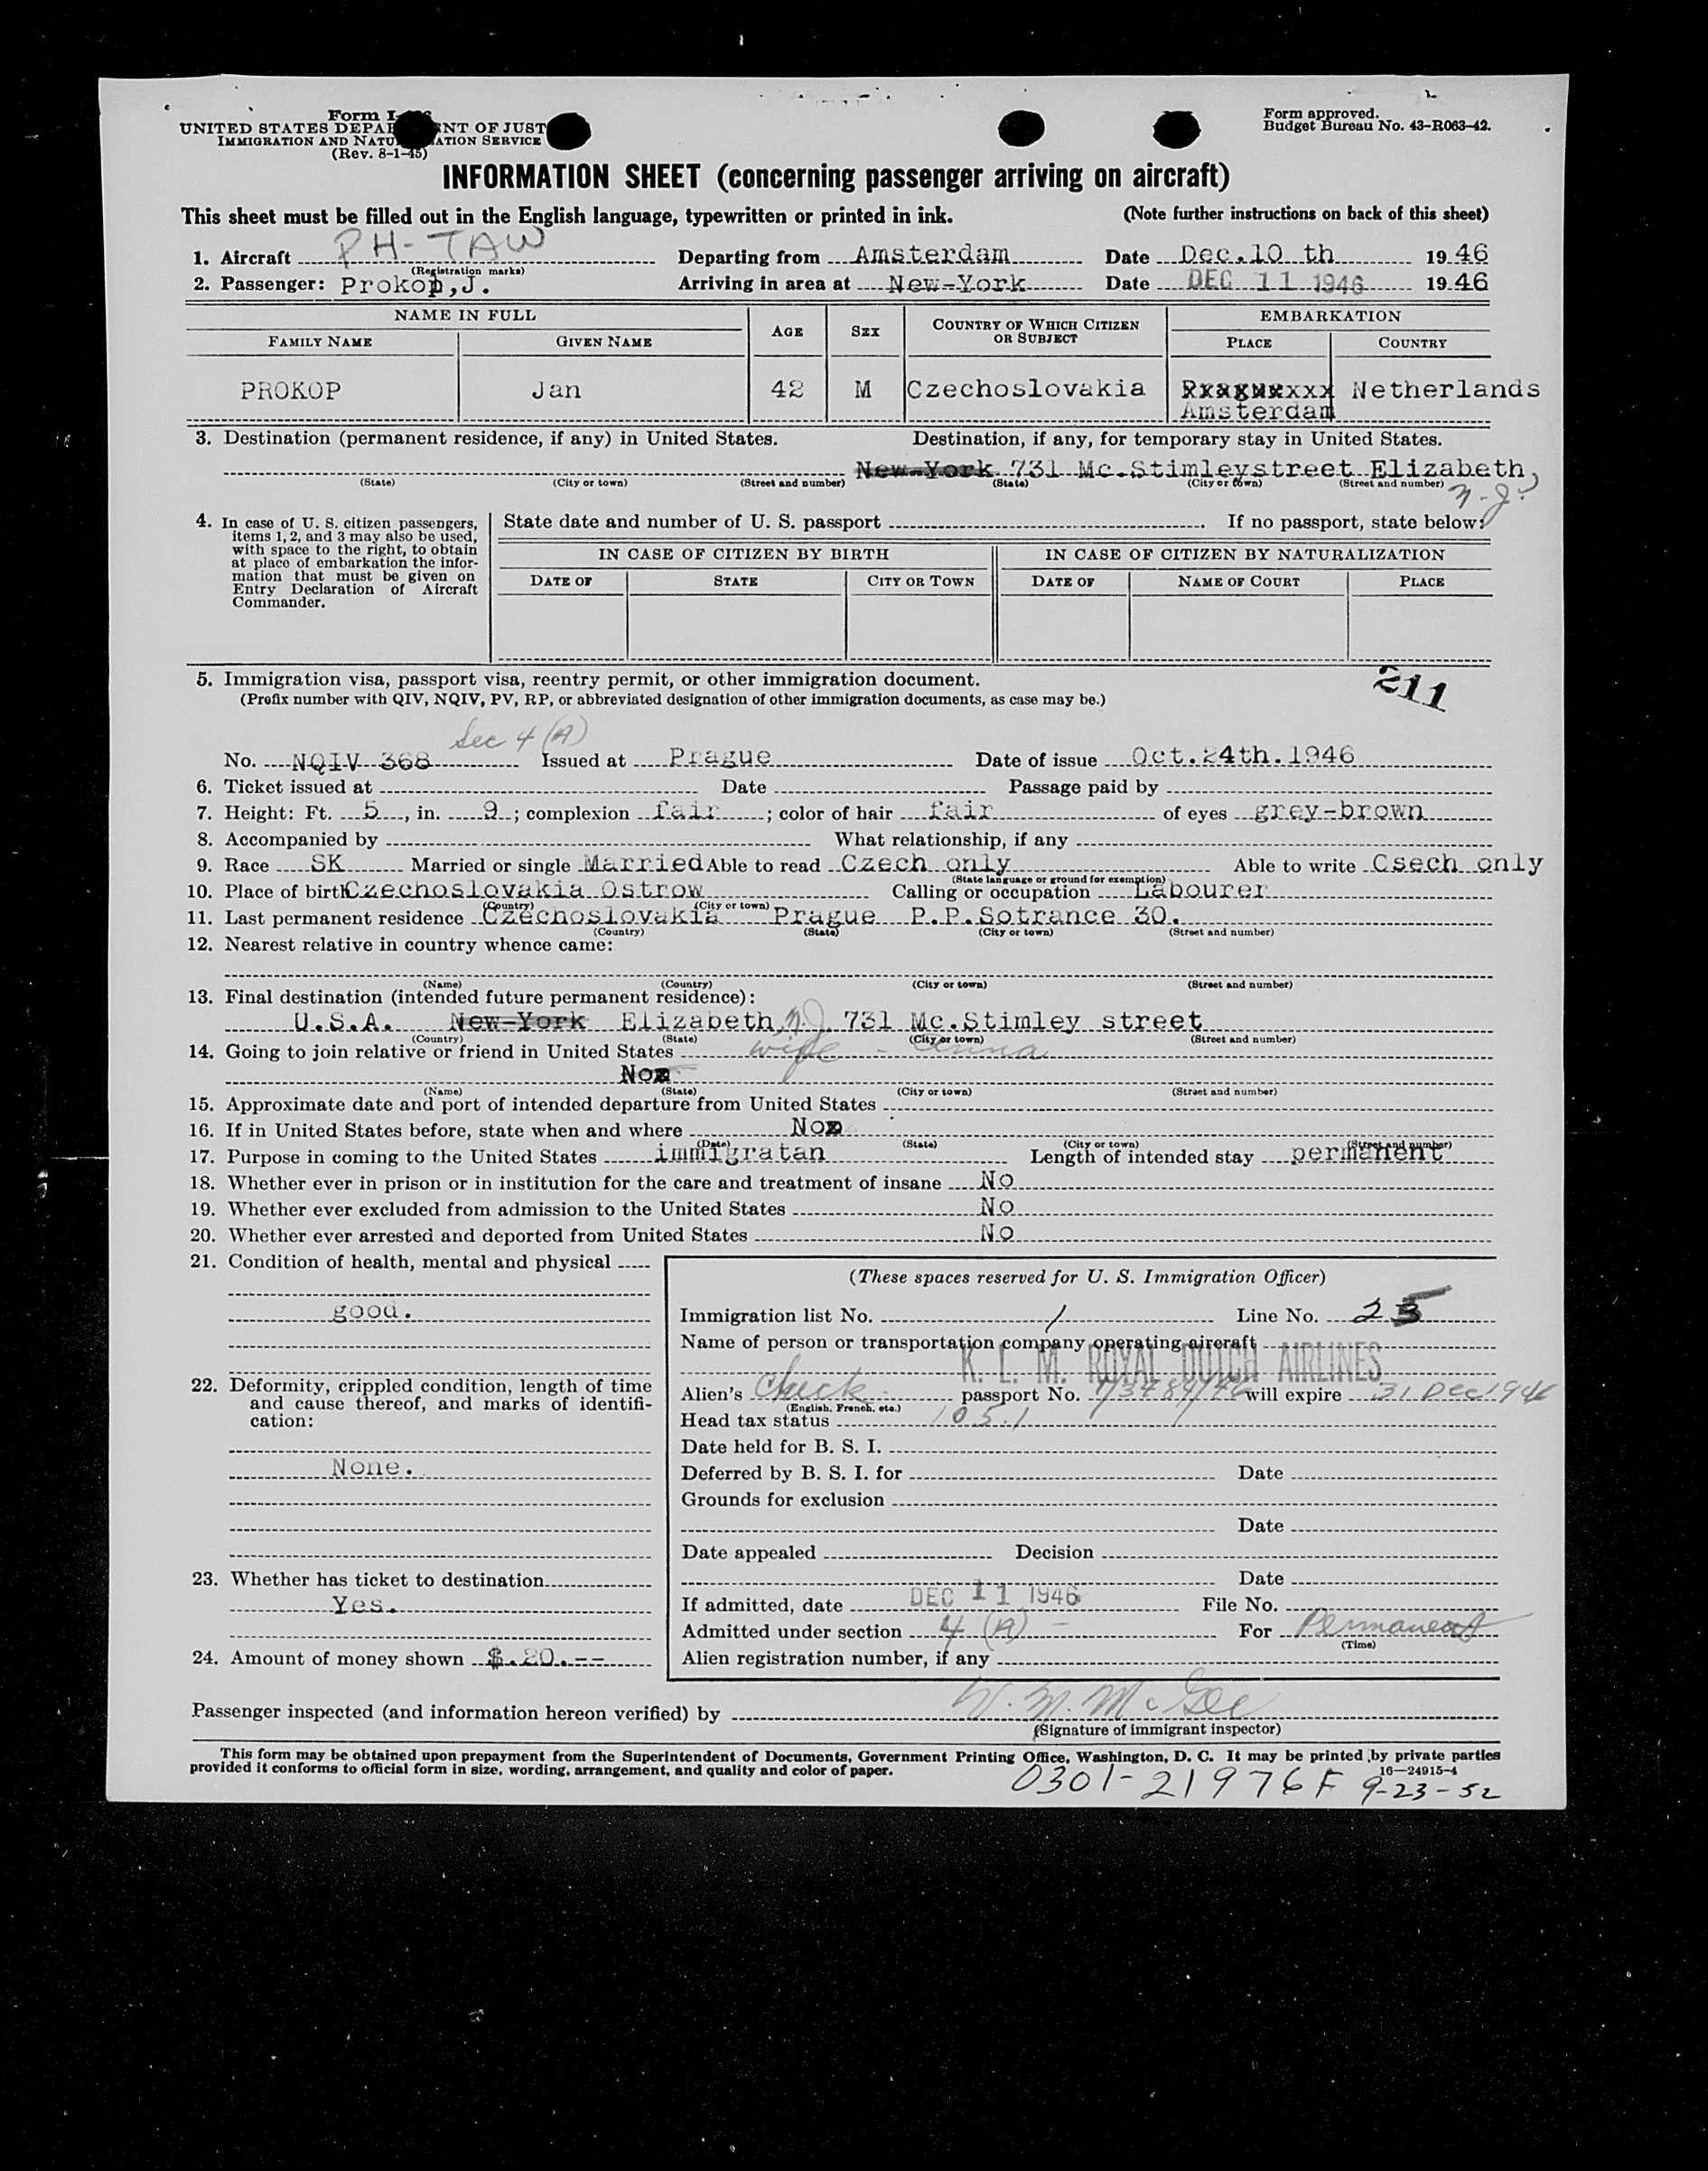 Form I-
UNITED STATES DEPA NT OF JUST
IMMIGRATION AND NATU ATION SERVICE
(Rev. 8-1-45)
Form approved.
Budget Bureau No. 43-R063-42.
INFORMATION SHEET (concerning passenger arriving on aircraft)
This sheet must be filled out in the English language, typewritten or printed in ink. (Note further instructions on back of this sheet)
1. Aircraft PH-TAW Departing from Amsterdam Date Dec.10 th 1946
(Registration marks)
2. Passenger: Prokop,J. Arriving in area at New-York Date DEC 11 1946 1946
NAME IN FULL AGE SEX COUNTRY OF WHICH CITIZEN OR SUBJECT EMBARKATION
FAMILY NAME GIVEN NAME PLACE COUNTRY
PROKOP Jan 42 M Czechoslovakia Netherlands
Amsterdam
3. Destination (permanent residence, if any) in United States. Destination, if any, for temporary stay in United States.
New-York 731 Mc.Stimleystreet Elizabeth,
N.J.
(State) (City or town) (Street and number) (State) (City or town) (Street and number)
4. In case of U. S. citizen passengers, items 1, 2, and 3 may also be used, with space to the right, to obtain at place of embarkation the information that must be given on Entry Declaration of Aircraft Commander.
State date and number of U. S. passport If no passport, state below:
IN CASE OF CITIZEN BY BIRTH IN CASE OF CITIZEN BY NATURALIZATION
DATE OF STATE CITY OR TOWN DATE OF NAME OF COURT PLACE
211
5. Immigration visa, passport visa, reentry permit, or other immigration document.
(Prefix number with QIV, NQIV, PV, RP, or abbreviated designation of other immigration documents, as case may be.)
Sec 4 (A)
No. NQIV 368 Issued at Prague Date of issue Oct.24th.1946
6. Ticket issued at Date Passage paid by
7. Height: Ft. 5, in. 9; complexion fair; color of hair fair of eyes grey-brown
8. Accompanied by What relationship, if any
9. Race SK Married or single Married Able to read Czech only Able to write Csech only
(State language or ground for exemption)
10. Place of birth Czechoslovakia Ostrow Calling or occupation Labourer
(Country) (City or town)
11. Last permanent residence Czechoslovakia Prague P.P.Sotrance 30.
(Country) (State) (City or town) (Street and number)
12. Nearest relative in country whence came:
(Name) (Country) (City or town) (Street and number)
13. Final destination (intended future permanent residence):
U.S.A. New-York Elizabeth, N.J. 731 Mc.Stimley street
(Country) (State) (City or town) (Street and number)
14. Going to join relative or friend in United States wife - Anna
No
(Name) (State) (City or town) (Street and number)
15. Approximate date and port of intended departure from United States
16. If in United States before, state when and where No
(Date) (State) (City or town) (Street and number)
17. Purpose in coming to the United States immigratan Length of intended stay permanent
18. Whether ever in prison or in institution for the care and treatment of insane No
19. Whether ever excluded from admission to the United States No
20. Whether ever arrested and deported from United States No
21. Condition of health, mental and physical
good.
22. Deformity, crippled condition, length of time and cause thereof, and marks of identification:
None.
23. Whether has ticket to destination
Yes.
24. Amount of money shown $.20.--
(These spaces reserved for U. S. Immigration Officer)
Immigration list No. 1 Line No. 25
Name of person or transportation company operating aircraft
K. L. M. ROYAL DUTCH AIRLINES
Alien's Check passport No. will expire 31 Dec 1946
(English, French, etc.)
Head tax status 105.1
Date held for B. S. I.
Deferred by B. S. I. for Date
Grounds for exclusion
Date
Date appealed Decision
Date
If admitted, date DEC 11 1946 File No.
Admitted under section 4 (A) - For Permanent
(Time)
Alien registration number, if any
Passenger inspected (and information hereon verified) by W. M. McGee
(Signature of immigrant inspector)
This form may be obtained upon prepayment from the Superintendent of Documents, Government Printing Office, Washington, D. C. It may be printed by private parties
provided it conforms to official form in size, wording, arrangement, and quality and color of paper. 16—24915-4
0301-21976F 9-23-52